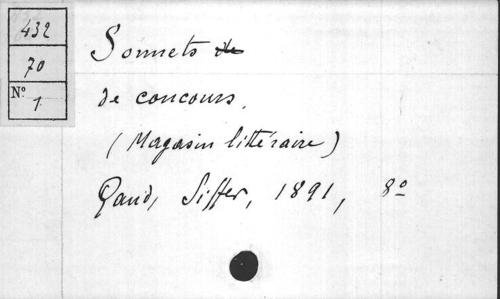 432
70
Nº 1
Sonnets de
de concours.
(Magasin littéraire)
Gand, Siffer, 1891, 8º